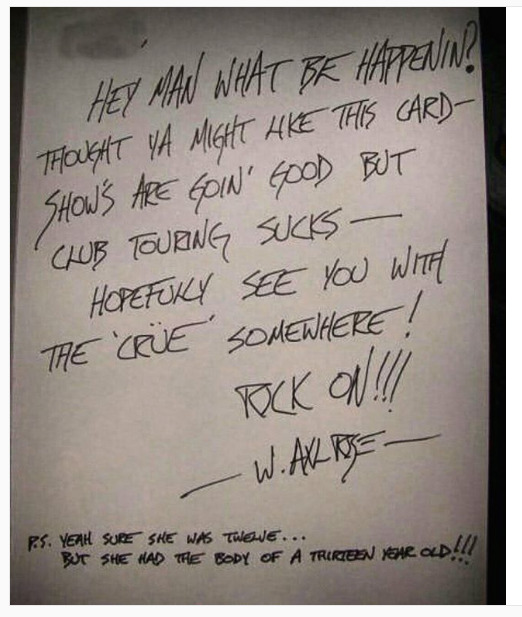 HEY MAN WHAT BE HAPPENIN?
THOUGHT YA MIGHT LIKE THIS CARD—
SHOW'S ARE GOIN' GOOD BUT
CLUB TOURING SUCKS —
HOPEFULLY SEE YOU WITH
THE 'CRÜE' SOMEWHERE!
ROCK ON!!!
— W. AXL ROSE —
P.S. YEAH SURE SHE WAS TWELVE...
BUT SHE HAD THE BODY OF A THIRTEEN YEAR OLD!!!